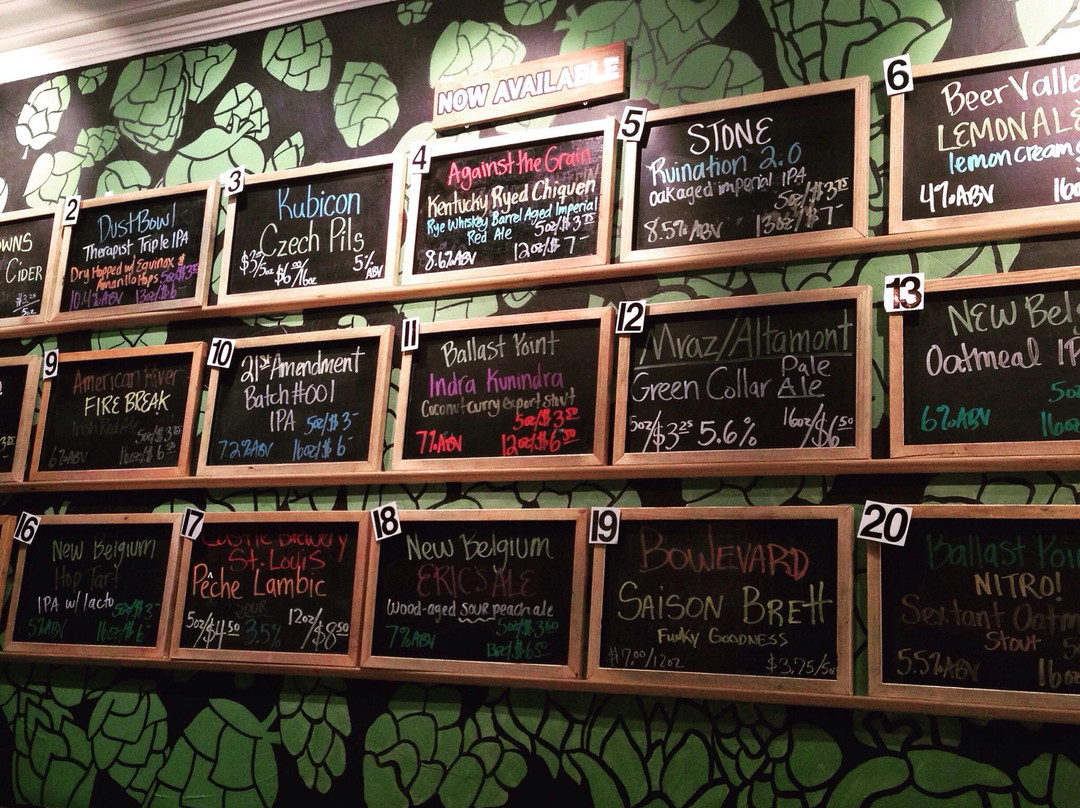 NOW AVAILABLE
OWNS
CIDER
$3.25
5oz
2
DustBowl
Therapist Triple IPA
Dry Hopped w/ Equinox &
Amarillo Hops 5oz/$3.75
10.4% ABV 13oz/$6
3
Kubicon
Czech Pils
$3/5oz $6/16oz 5% ABV
4
Against the Grain
Kentucky Ryed Chiquen
Rye Whiskey Barrel Aged Imperial
Red Ale 5oz/$3.75
8.6% ABV 12oz/$7-
5
STONE
Ruination 2.0
oak aged imperial IPA
5oz/$3.75
8.5% ABV 13oz/$7-
6
Beer Valle
LEMON ALE
lemon cream
4% ABV 16o
9
American River
FIRE BREAK
Irish Red Ale
5oz/$3.25
6% ABV 16oz/$6.50
10
21st Amendment
Batch #001
IPA 5oz/$3-
7.2% ABV 16oz/$6-
11
Ballast Point
Indra Kunindra
Coconut curry export stout
5oz/$3.50
7% ABV 12oz/$6.50
12
Mraz/Altamont
Green Collar Pale Ale
5oz/$3.25 5.6% 16oz/$6.50
13
NEW Belg
Oatmeal IP
5oz
6% ABV 16oz
16
New Belgium
Hop Tart
IPA w/ lacto 5oz/$3-
5% ABV 16oz/$6-
17
Castle Brewery
St. Louis
Pêche Lambic
SOUR
5oz/$4.50 3.5% 12oz/$8.50
18
New Belgium
ERIC'S ALE
Wood-aged sour peach ale
7% ABV
19
BOULEVARD
SAISON BRETT
FUNKY GOODNESS
$7.00/12oz $3.75/5oz
20
Ballast Poin
NITRO!
Sextant Oatm
Stout
5.5% ABV 16o